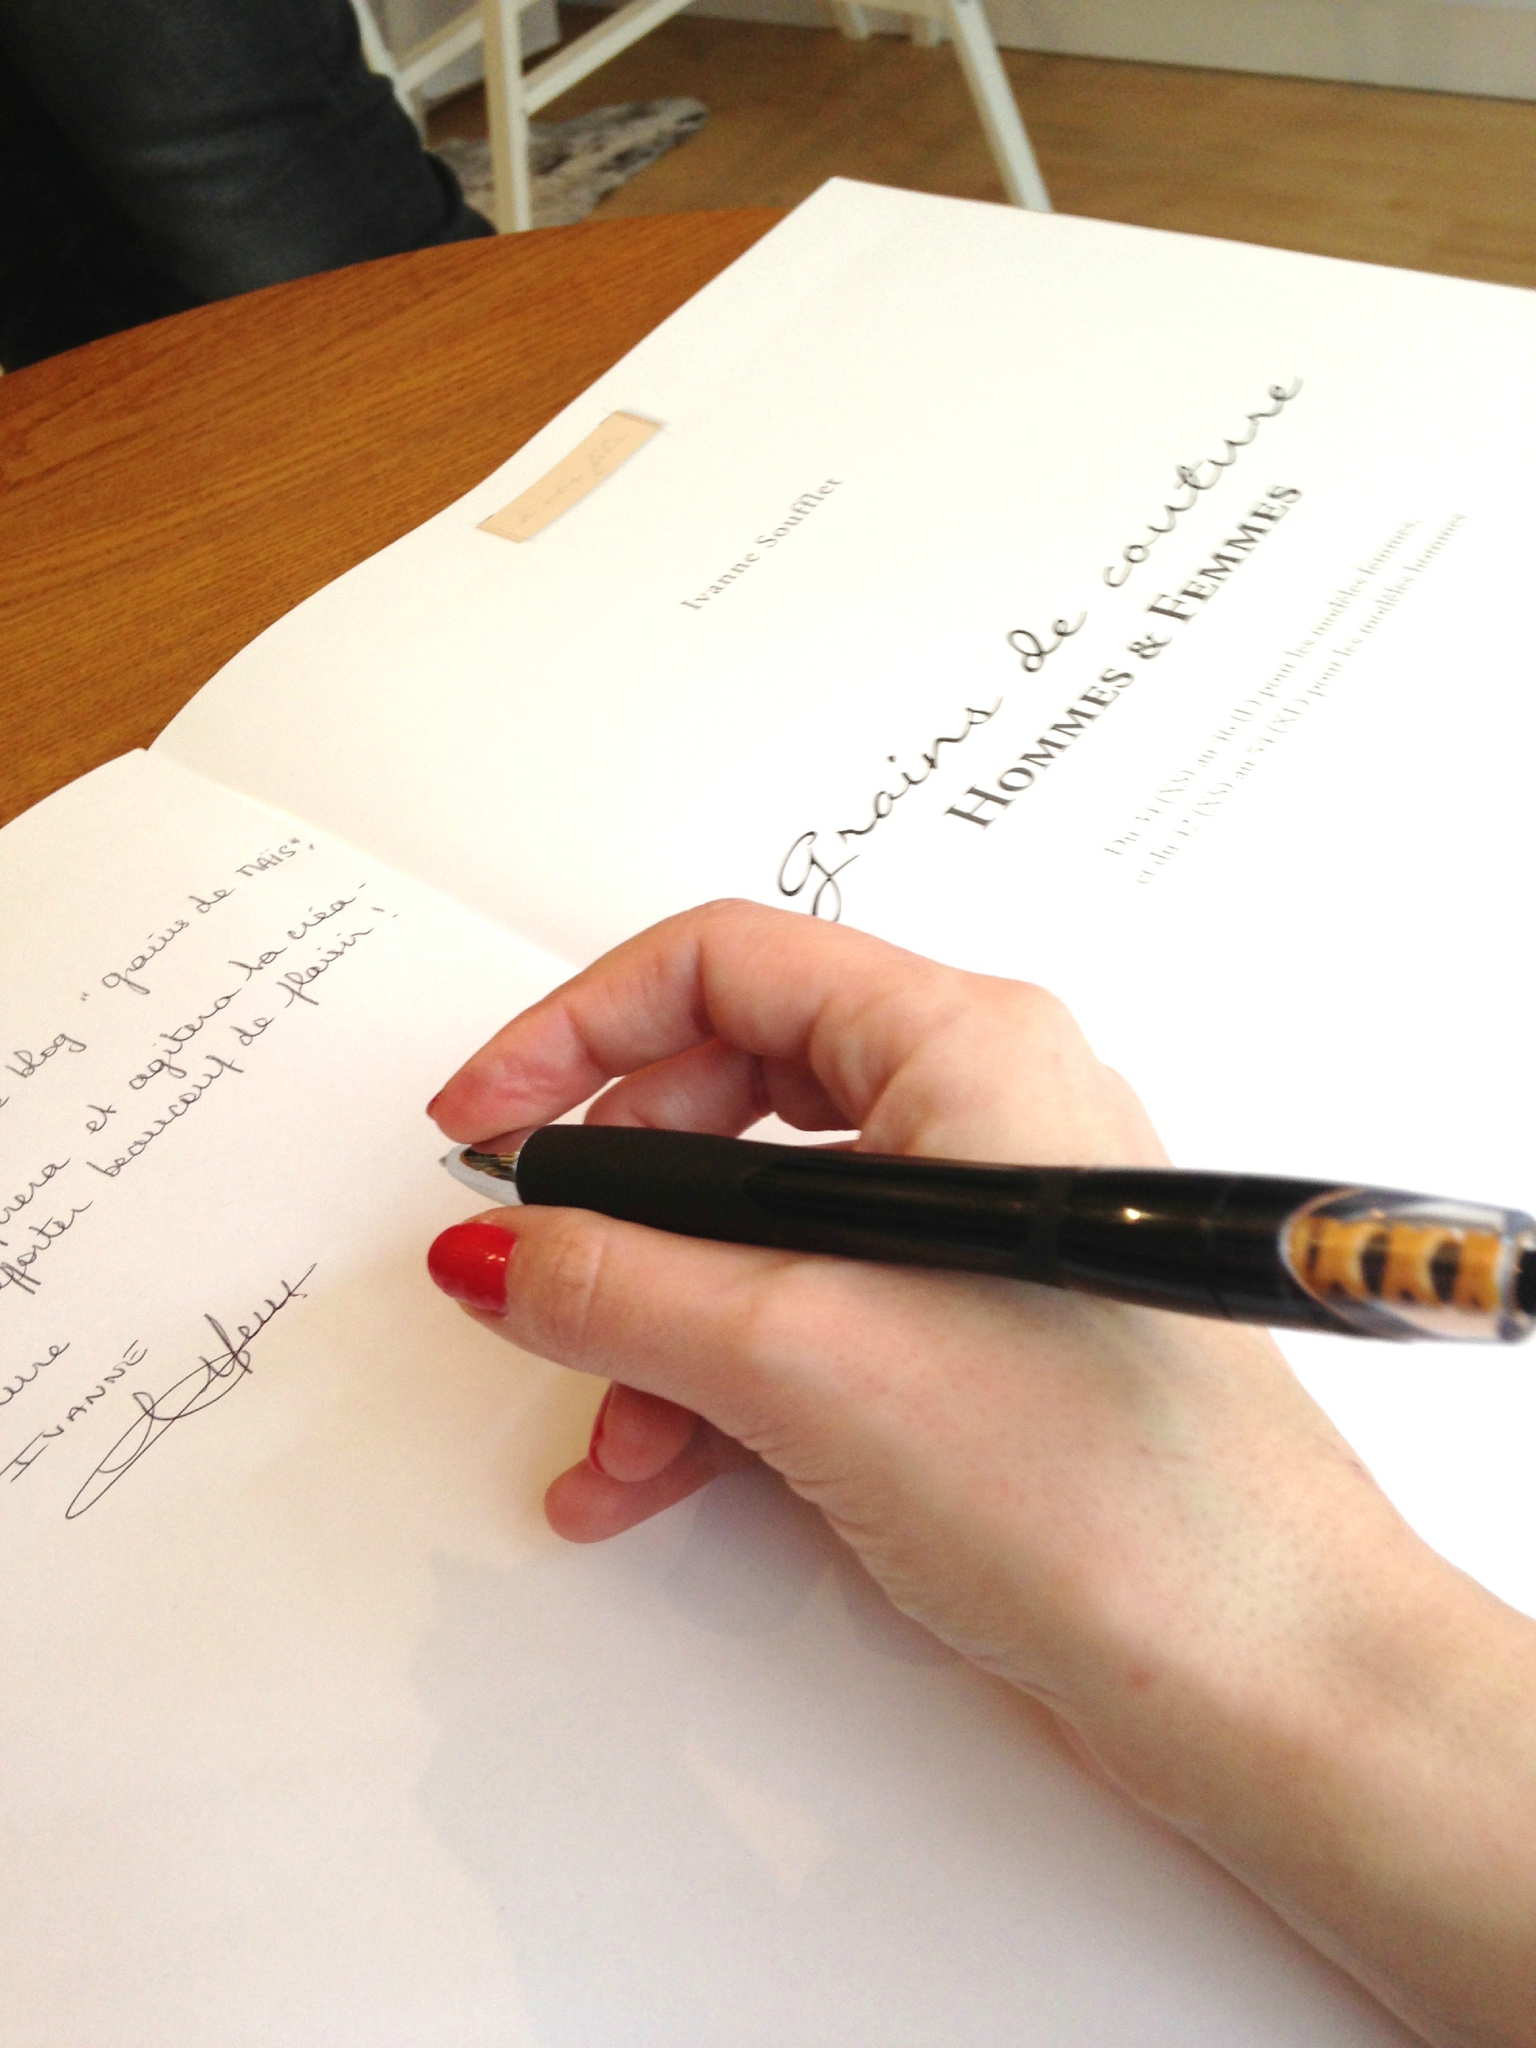 blog "grains de MAÏS",
et agitera ta créa-
pporter beaucoup de plaisir!
IVANNE
Ivanne Soufflet
grains de couture
HOMMES & FEMMES
Du 34 (XS) au 46 (L) pour les modèles femmes,
et du 42 (XS) au 54 (XL) pour les modèles hommes